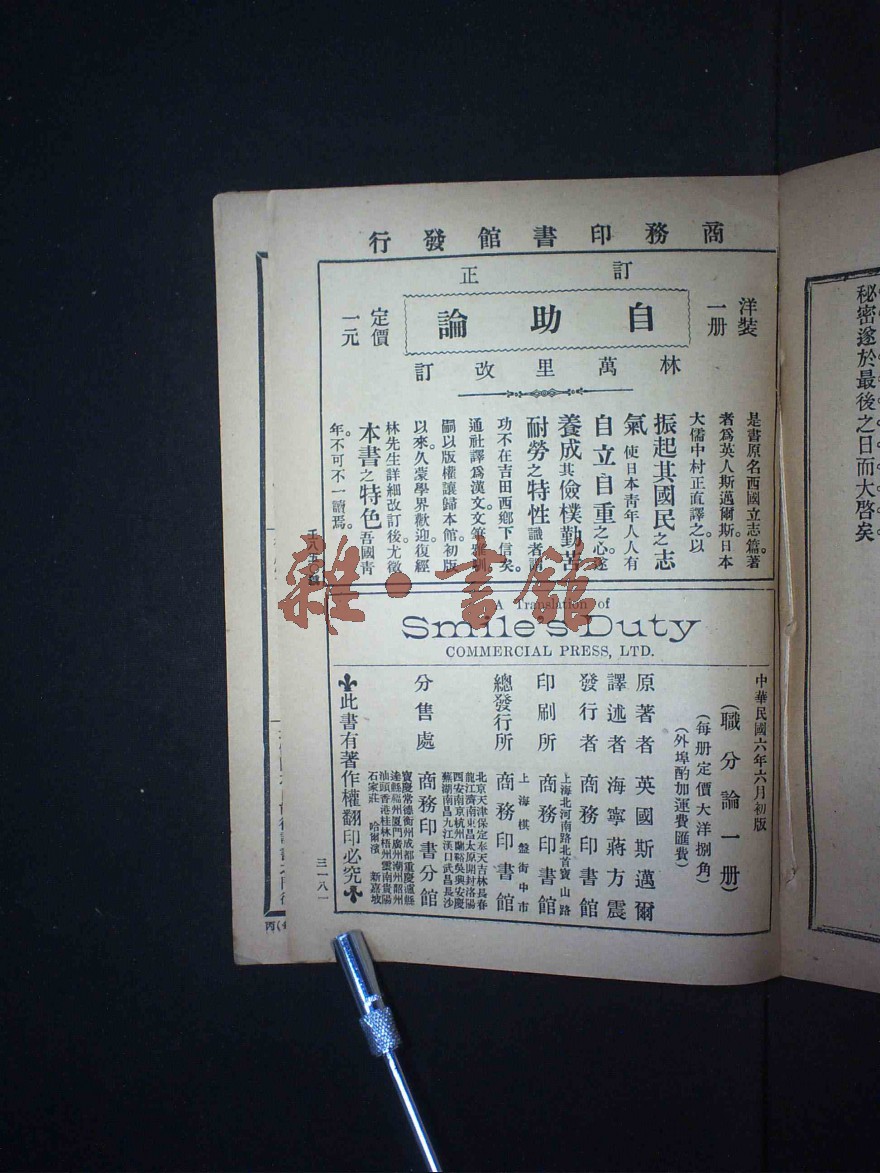 商務印書館發行
訂正
洋裝一册
自助論
定價一元
林萬里改訂
是書原名西國立志篇。著
者爲英人斯邁爾斯。日本
大儒中村正直譯之。以
振起其國民之志
氣使日本靑年人人有
自立自重之心。遂
養成其儉樸勤苦
耐勞之特性識者謂
功不在吉田西鄉下信矣。
通社譯爲漢文文筆雅馴
嗣以版權讓歸本館。初版
以來。久蒙學界歡迎復經
林先生詳細改訂後尤徵
本書之特色吾國靑
年。不可不一讀焉。
雜·書館
A Translation of
Smile's Duty
COMMERCIAL PRESS, LTD.
中華民國六年六月初版
(職分論一册)
(每册定價大洋捌角)
(外埠酌加運費匯費)
原著者 英國斯邁爾
譯述者 海寧蔣方震
發行者 商務印書館
印刷所 上海北河南路北首寶山路 商務印書館
總發行所 上海棋盤街中市 商務印書館
分售處 商務印書分館
北京天津保定奉天吉林長春
龍江濟南東昌太原開封洛陽
西安南京杭州蘭谿吳興安慶
蕪湖南昌九江漢口武昌長沙
寶慶常德衡州成都重慶瀘縣
達縣福州厦門廣州潮州韶州
汕頭香港桂林梧州雲南貴陽
石家莊 哈爾濱 新嘉坡
此書有著作權翻印必究
三一八一
秘密遂於最後之日而大啓矣